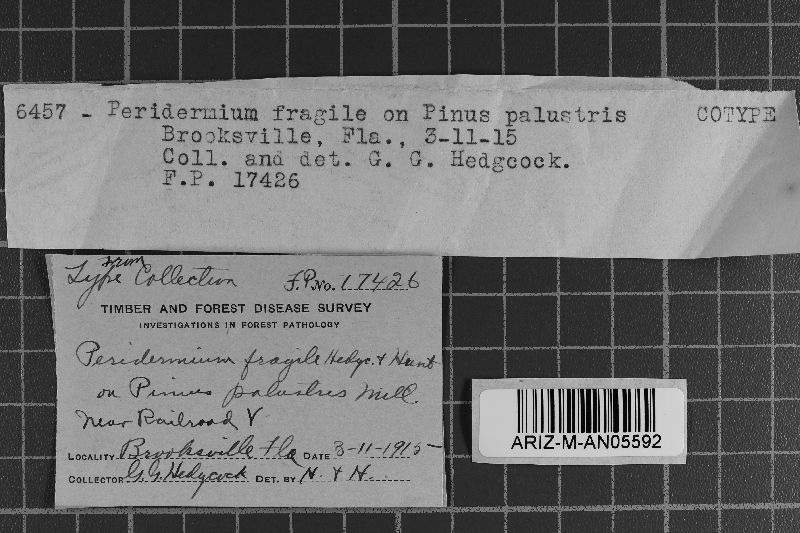 6457 - Peridermium fragile on Pinus palustris COTYPE
Brooksville, Fla., 3-11-15
Coll. and det. G. G. Hedgcock.
F.P. 17426
from
Type Collection F.P. No. 17426
TIMBER AND FOREST DISEASE SURVEY
INVESTIGATIONS IN FOREST PATHOLOGY
Peridermium fragile Hedgc. & Hunt
on Pinus palustris Mill.
Near Railroad Y
LOCALITY Brooksville Fla DATE 3-11-1915
COLLECTOR G. G. Hedgcock DET. BY H. & H.
ARIZ-M-AN05592